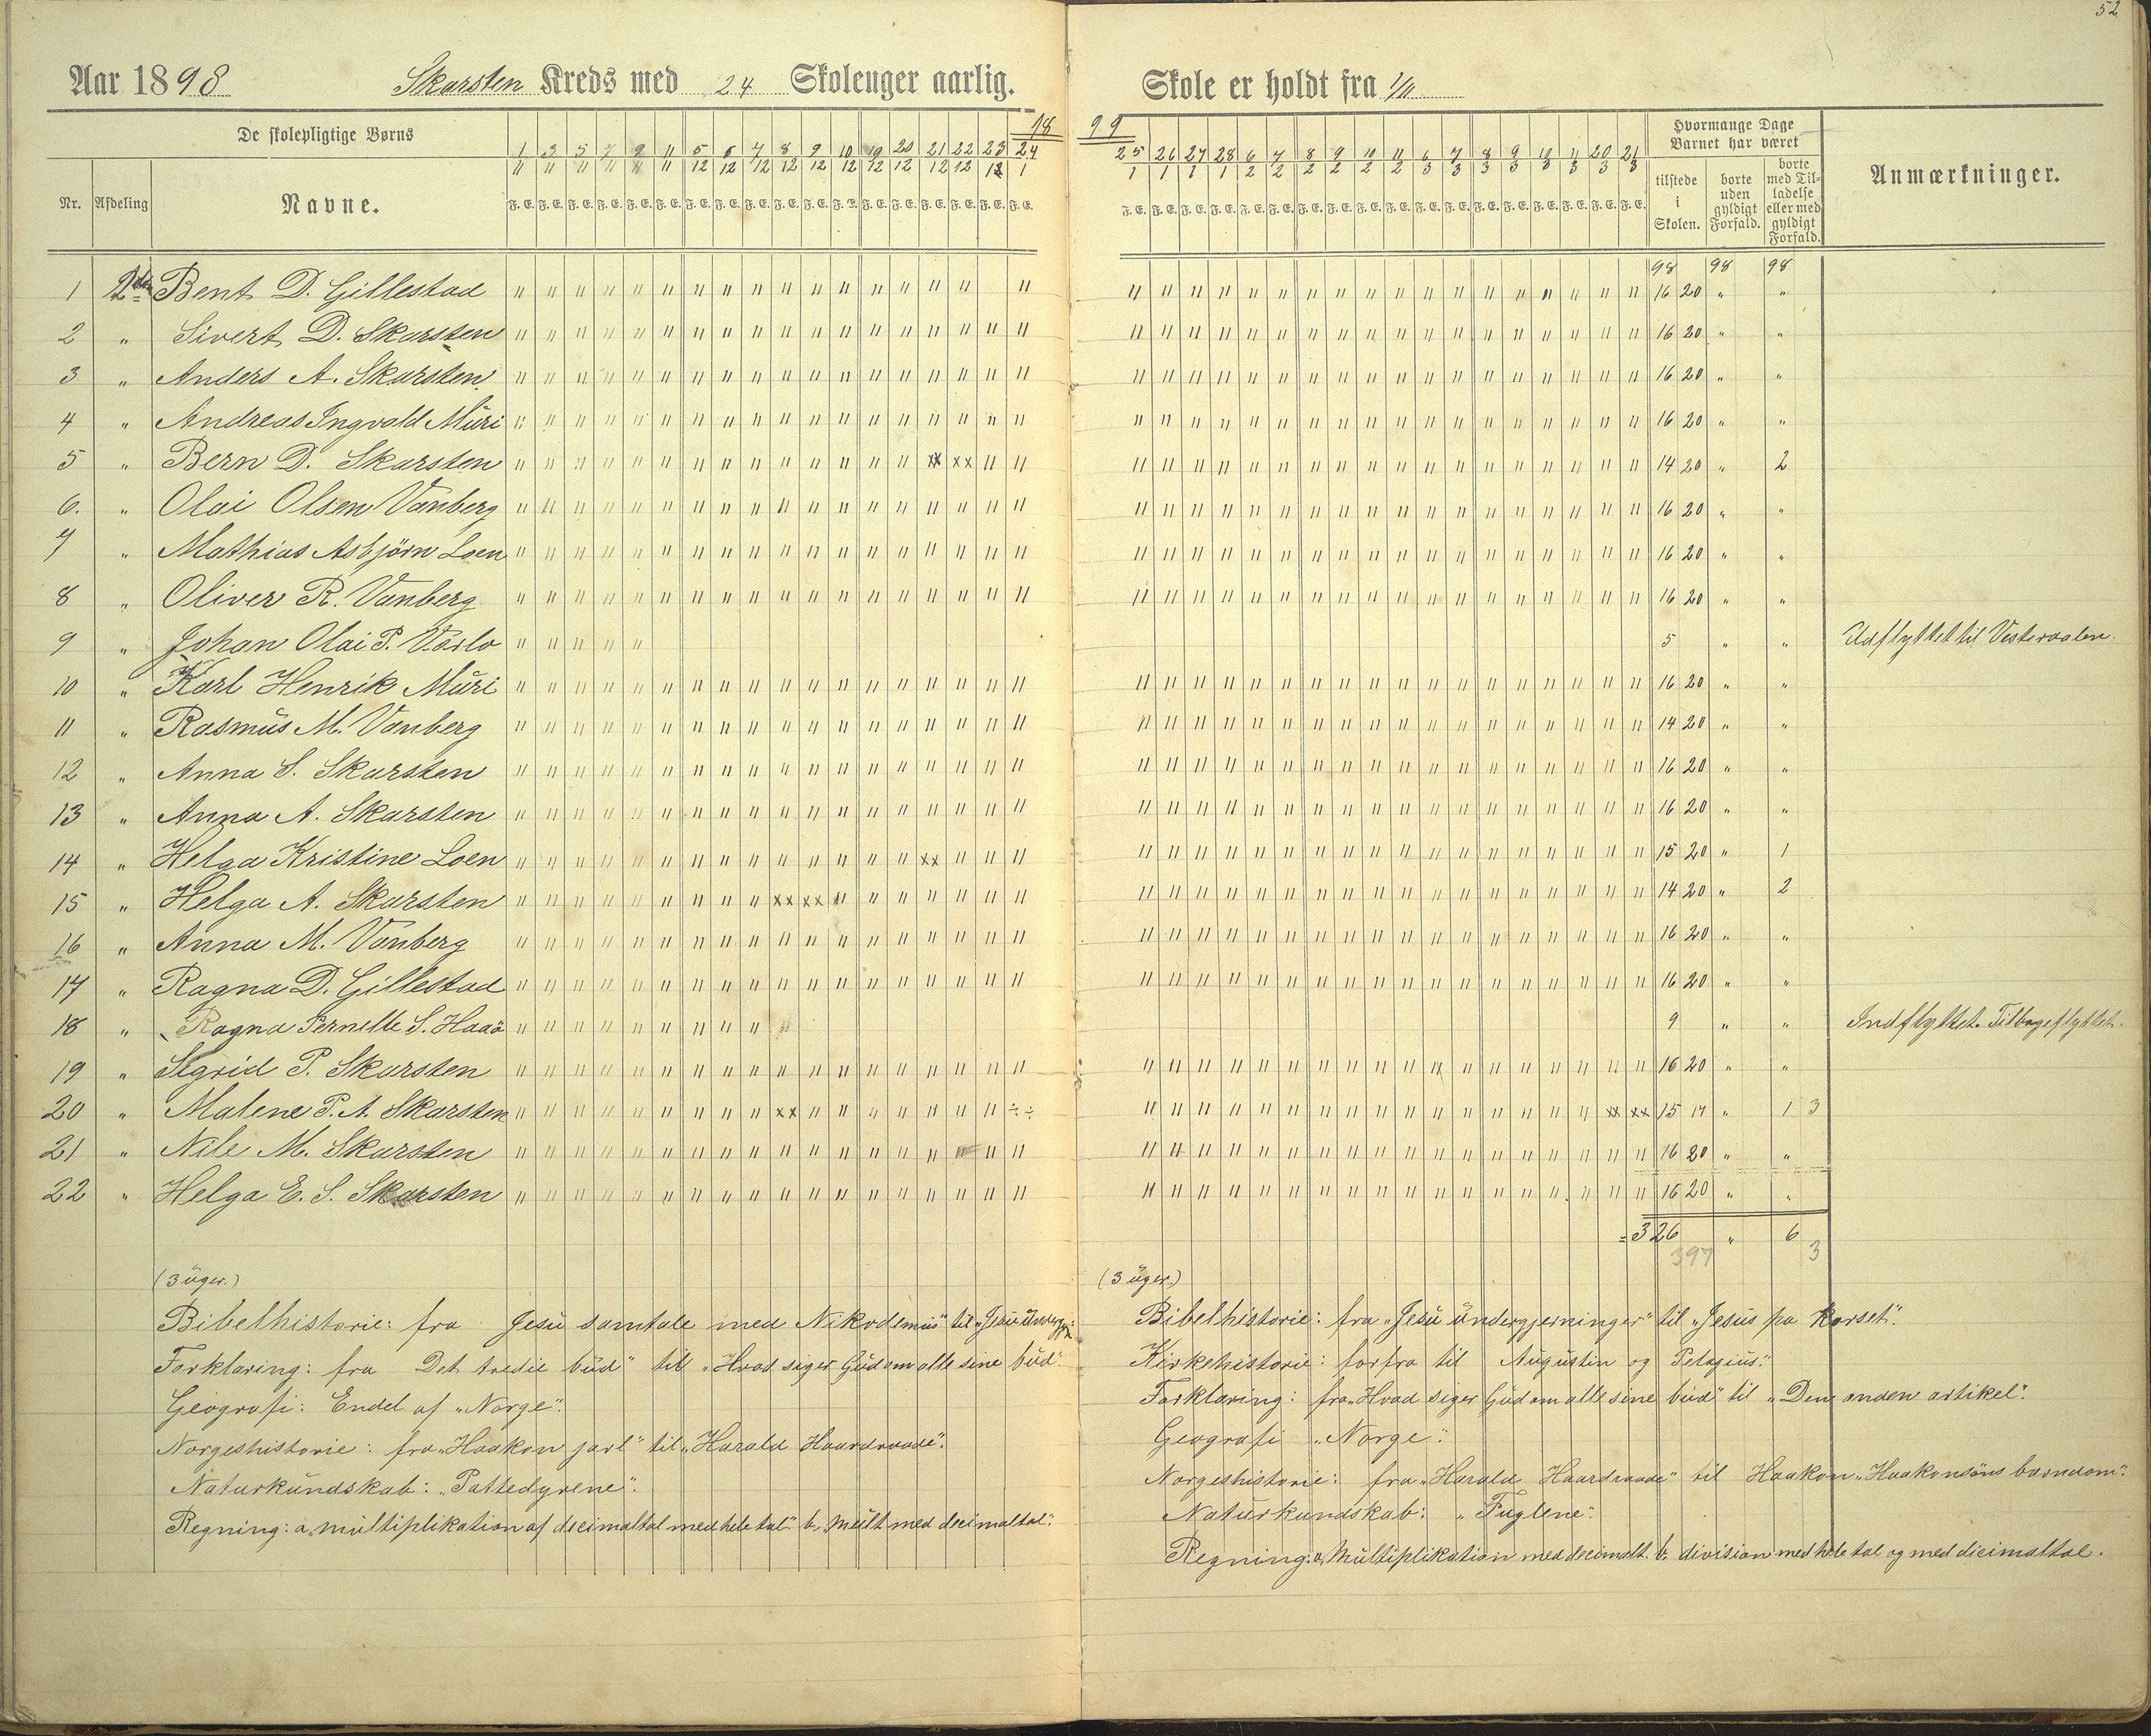 52
Aar 1898 Skarsten Kreds med 24 Skoleuger aarlig. Skole er holdt fra 1/11
De skolepligtige Børns
Nr. Afdeling Navne.
18 99
1 3 5 7 9 11 5 6 7 8 9 10 19 20 21 22 23 24
11 11 11 11 11 11 12 12 12 12 12 12 12 12 12 12 12 1
F. E. F. E. F. E. F. E. F. E. F. E. F. E. F. E. F. E. F. E. F. E. F. E. F. E. F. E. F. E. F. E. F. E. F. E.
25 26 27 28 6 7 8 9 10 11 6 7 8 9 10 11 20 21
1 1 1 1 2 2 2 2 2 2 3 3 3 3 3 3 3 3
F. E. F. E. F. E. F. E. F. E. F. E. F. E. F. E. F. E. F. E. F. E. F. E. F. E. F. E. F. E. F. E. F. E. F. E.
Hvormange Dage Barnet har været
tilstede i Skolen.
borte uden gyldigt Forfald.
borte med Tilladelse eller med gyldigt Forfald.
Anmærkninger.
98 98 98
1 2den Bent D. Gillestad 16 20 " "
2 " Sivert D. Skarsten 16 20 " "
3 " Anders A. Skarsten 16 20 " "
4 " Andreas Ingvald Muri 16 20 " "
5 " Bern D. Skarsten xx xx 14 20 " 2
6. " Olai Olsen Vanberg 16 20 " "
7 " Mathias Asbjörn Loen 16 20 " "
8 " Oliver R. Vanberg 16 20 " "
9 " Johan Olai P. Vaslo 5 " " Udflyttet til Vesteraalen.
10 " Karl Henrik Muri 16 20 " "
11 " Rasmus M. Vanberg 14 20 " "
12 " Anna S. Skarsten 16 20 " "
13 " Anna A. Skarsten 16 20 " "
14 " Helga Kristine Loen xx 15 20 " 1
15 " Helga A. Skarsten xx xx 14 20 " 2
16 " Anna M. Vanberg 16 20 " "
17 " Ragna D. Gillestad 16 20 " "
18 " Ragna Pernelle S. Haaö 9 " " Indflyttet. Tilbageflyttet.
19 " Sigrid P. Skarsten 16 20 " "
20 " Malene P. A. Skarsten xx ÷÷ xx xx 15 17 " 1 3
21 " Nile M. Skarsten 16 20 " "
22 " Helga E. S. Skarsten 16 20 " "
= 326 " 6
397 3
(3 uger.)
Bibelhistorie: fra Jesu samtale med Nikodemus" til "Jesu Undergj:
Forklaring: fra Det tredie bud" til "Hvad siger Gud om alle sine bud".
Geografi: Endel af "Norge".
Norgeshistorie: fra "Haakon jarl" til "Harald Haardraade".
Naturkundskab: "Pattedyrene".
Regning: a, multiplikation af decimaltal med hele tal". b, mult med decimaltal".
(3 uger)
Bibelhistorie: fra "Jesu undergjerninger" til "Jesus pa korset".
Kirkehistorie: forfra til Augustin og Pelagius".
Forklaring: fra "Hvad siger Gud om alle sine bud" til "Den anden artikel".
Geografi "Norge".
Norgeshistorie: fra "Harald Haardraade" til Haakon "Haakonsöns barndom".
Naturkundskab: "Fuglene".
Regning: a, Multiplikation med decimalt. b, division med hele tal og med dicimaltal.